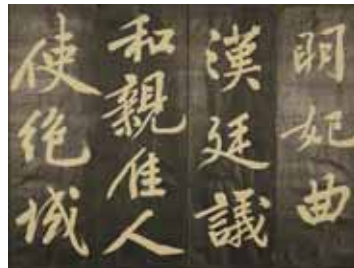 明妃曲
漢廷議
和親佳人
使絶域